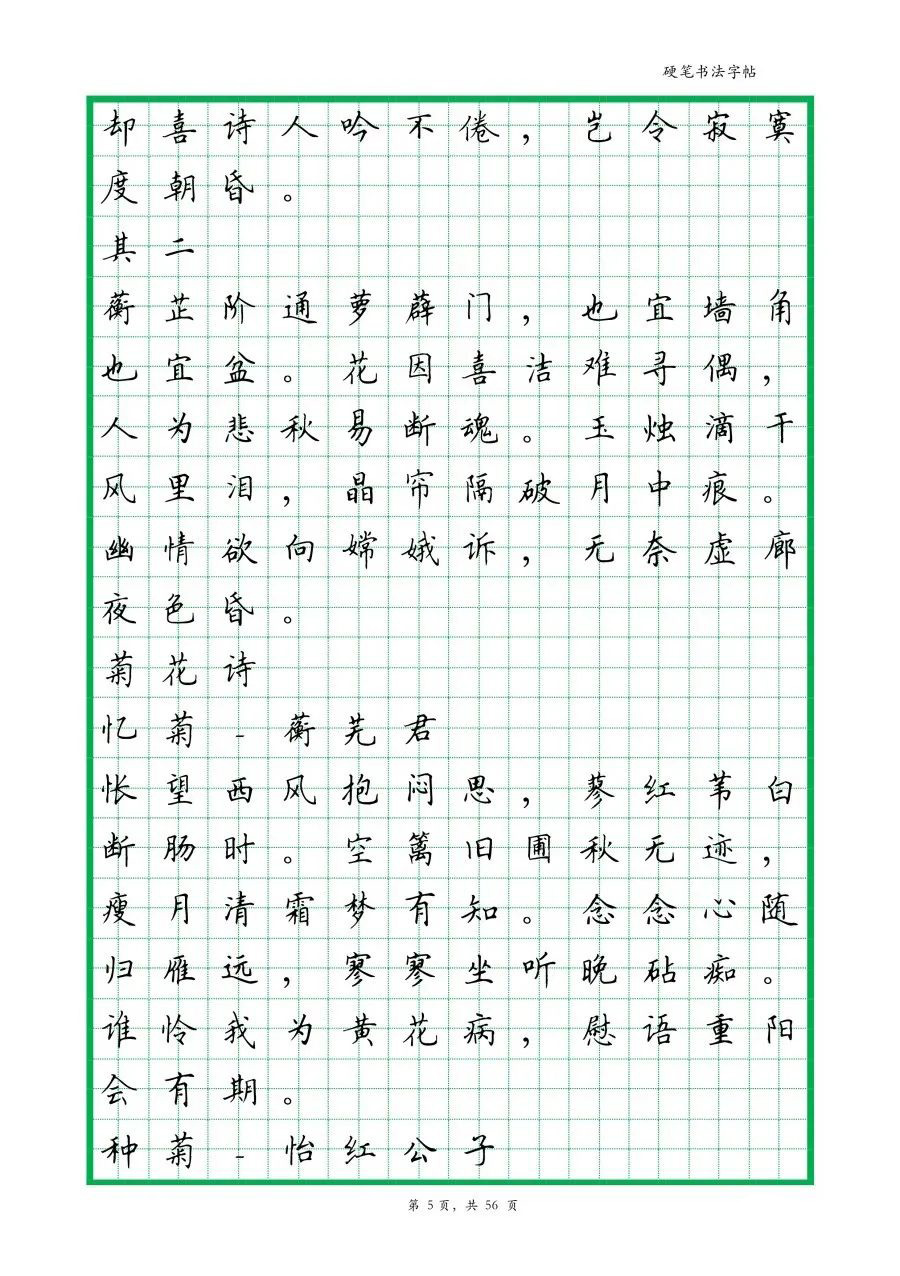 硬笔书法字帖
却喜诗人吟不倦，岂令寂寞
度朝昏。
其二
蘅芷阶通萝薜门，也宜墙角
也宜盆。花因喜洁难寻偶，
人为悲秋易断魂。玉烛滴干
风里泪，晶帘隔破月中痕。
幽情欲向嫦娥诉，无奈虚廊
夜色昏。
菊花诗
忆菊-蘅芜君
怅望西风抱闷思，蓼红苇白
断肠时。空篱旧圃秋无迹，
瘦月清霜梦有知。念念心随
归雁远，寥寥坐听晚砧痴。
谁怜我为黄花病，慰语重阳
会有期。
种菊-怡红公子
第 5 页，共 56 页